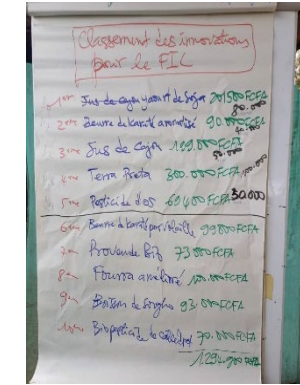 Classement des innovations
pour le FIL
1er Jus de cajou yaourt de Soja 201500 FCFA
80.000
2eme Beurre de karité aromatisé 90.000 FCFA
3eme Jus de Cajou FCFA
50.000
4eme Terra Preta 300.000 FCFA
5eme Pesticide 69400 FCFA 30.000
6eme Beurre de karité 99000 FCFA
7em Provende Bio 73000 FCFA
8em Foura amélioré 100.000 FCFA
9em de Sorgho 93.000 FCFA
10em Biopesticide 70.000 FCFA